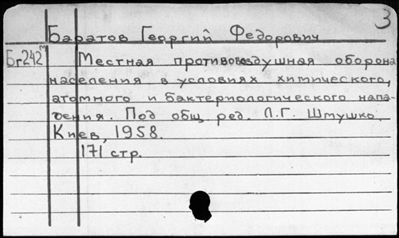 3
Баратов Георгий Федорович
Бг242м Местная противовоздушная оборона
населения в условиях химического,
атомного и бактериологического напа-
дения. Под общ. ред. Л.Г. Шмушко,
Киев, 1958.
171 стр.